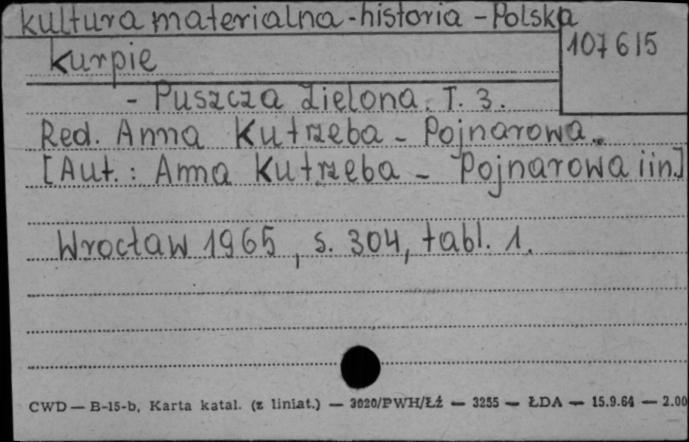 kultura materialna - historia - Polska
107 615
Kurpie
- Puszcza Zielona. T. 3.
Red. Anna Kutrzeba - Pojnarowa.
[Aut.: Anna Kutrzeba - Pojnarowa i in.]
Wrocław 1965, s. 304, tabl. 1.
CWD — B-15-b, Karta katal. (z liniat.) — 3020/PWH/Łź — 3255 — ŁDA — 15.9.64 — 2.00